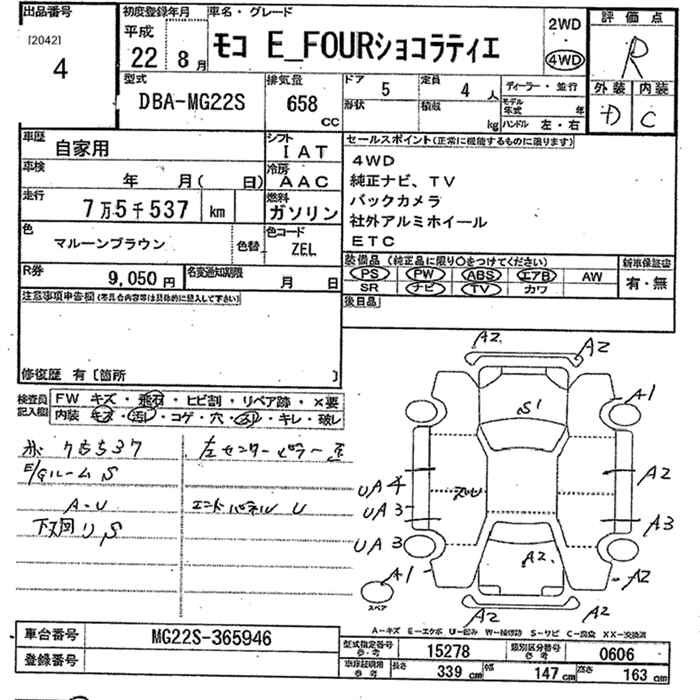 出品番号
[2042]
4
初度登録年月
平成
22 8月
車名・グレード
モコ E_FOURショコラティエ
2WD
4WD
評価点
R
外装 内装
D C
型式
DBA-MG22S
排気量
658
cc
ドア 5
定員 4 人
形状
積載 kg
ディーラー・並行
モデル年式 年
ハンドル 左・右
車歴
自家用
シフト
IAT
車検
年 月( 日)
冷房
AAC
走行
7万5千537 km
燃料
ガソリン
色
マルーンブラウン
色替
色コード
ZEL
R券
9,050円
名変通知期限
月 日
セールスポイント(正常に機能するものに限ります)
4WD
純正ナビ、TV
バックカメラ
社外アルミホイール
ETC
装備品 (純正品に限り○をつけてください)
PS PW ABS エアB AW
SR ナビ TV カワ
新車保証書
有・無
後日品
注意事項申告欄(不具合内容等は具体的に記入して下さい)
修復歴 有〔箇所 〕
検査員記入欄
FW キズ・飛石・ヒビ割・リペア跡・×要
内装・キズ・汚れ・コゲ・穴・スリ・キレ・破レ
75537
左センターピラー
E/Gルーム S
A-U
エンドパネル U
下回り S
A2 A2
S'
A1
UA4
スレU
A2
UA3
A3
UA3
A2
A1
A2
スペア
A2 A2
A-キズ E-エクボ U-凹み W-補修跡 S-サビ C-腐食 XX-交換済
車台番号 MG22S-365946
登録番号
型式指定番号 参考 15278
類別区分番号 参考 0606
車庫証明用 参考 長さ 339 cm 幅 147 cm 高さ 163 cm